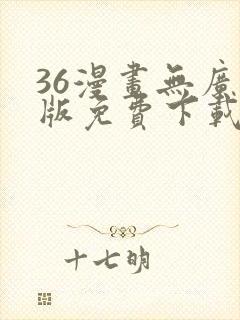 36漫畫無廣
版免費下載
十七明